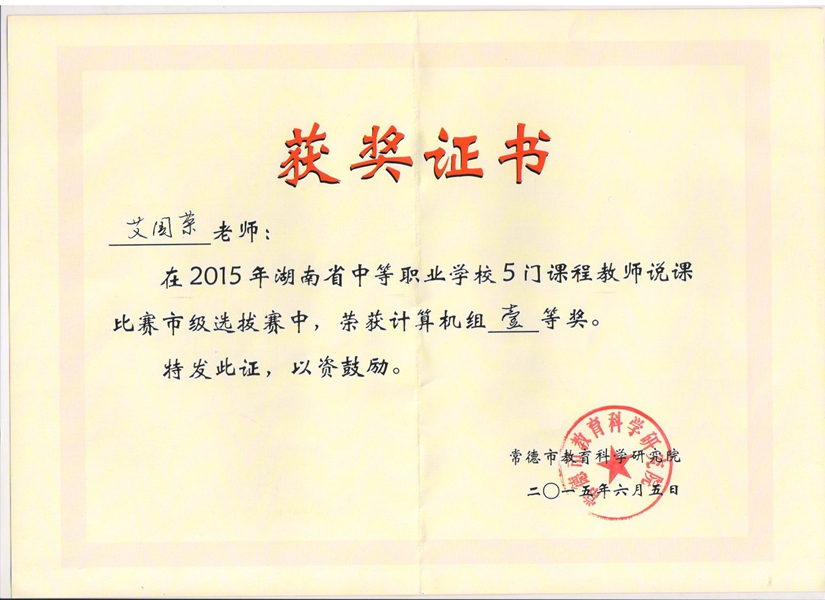 获奖证书
艾国荣老师：
在2015年湖南省中等职业学校5门课程教师说课
比赛市级选拔赛中，荣获计算机组壹等奖。
特发此证，以资鼓励。
常德市教育科学研究院
常德市教育科学研究院
二〇一五年六月五日